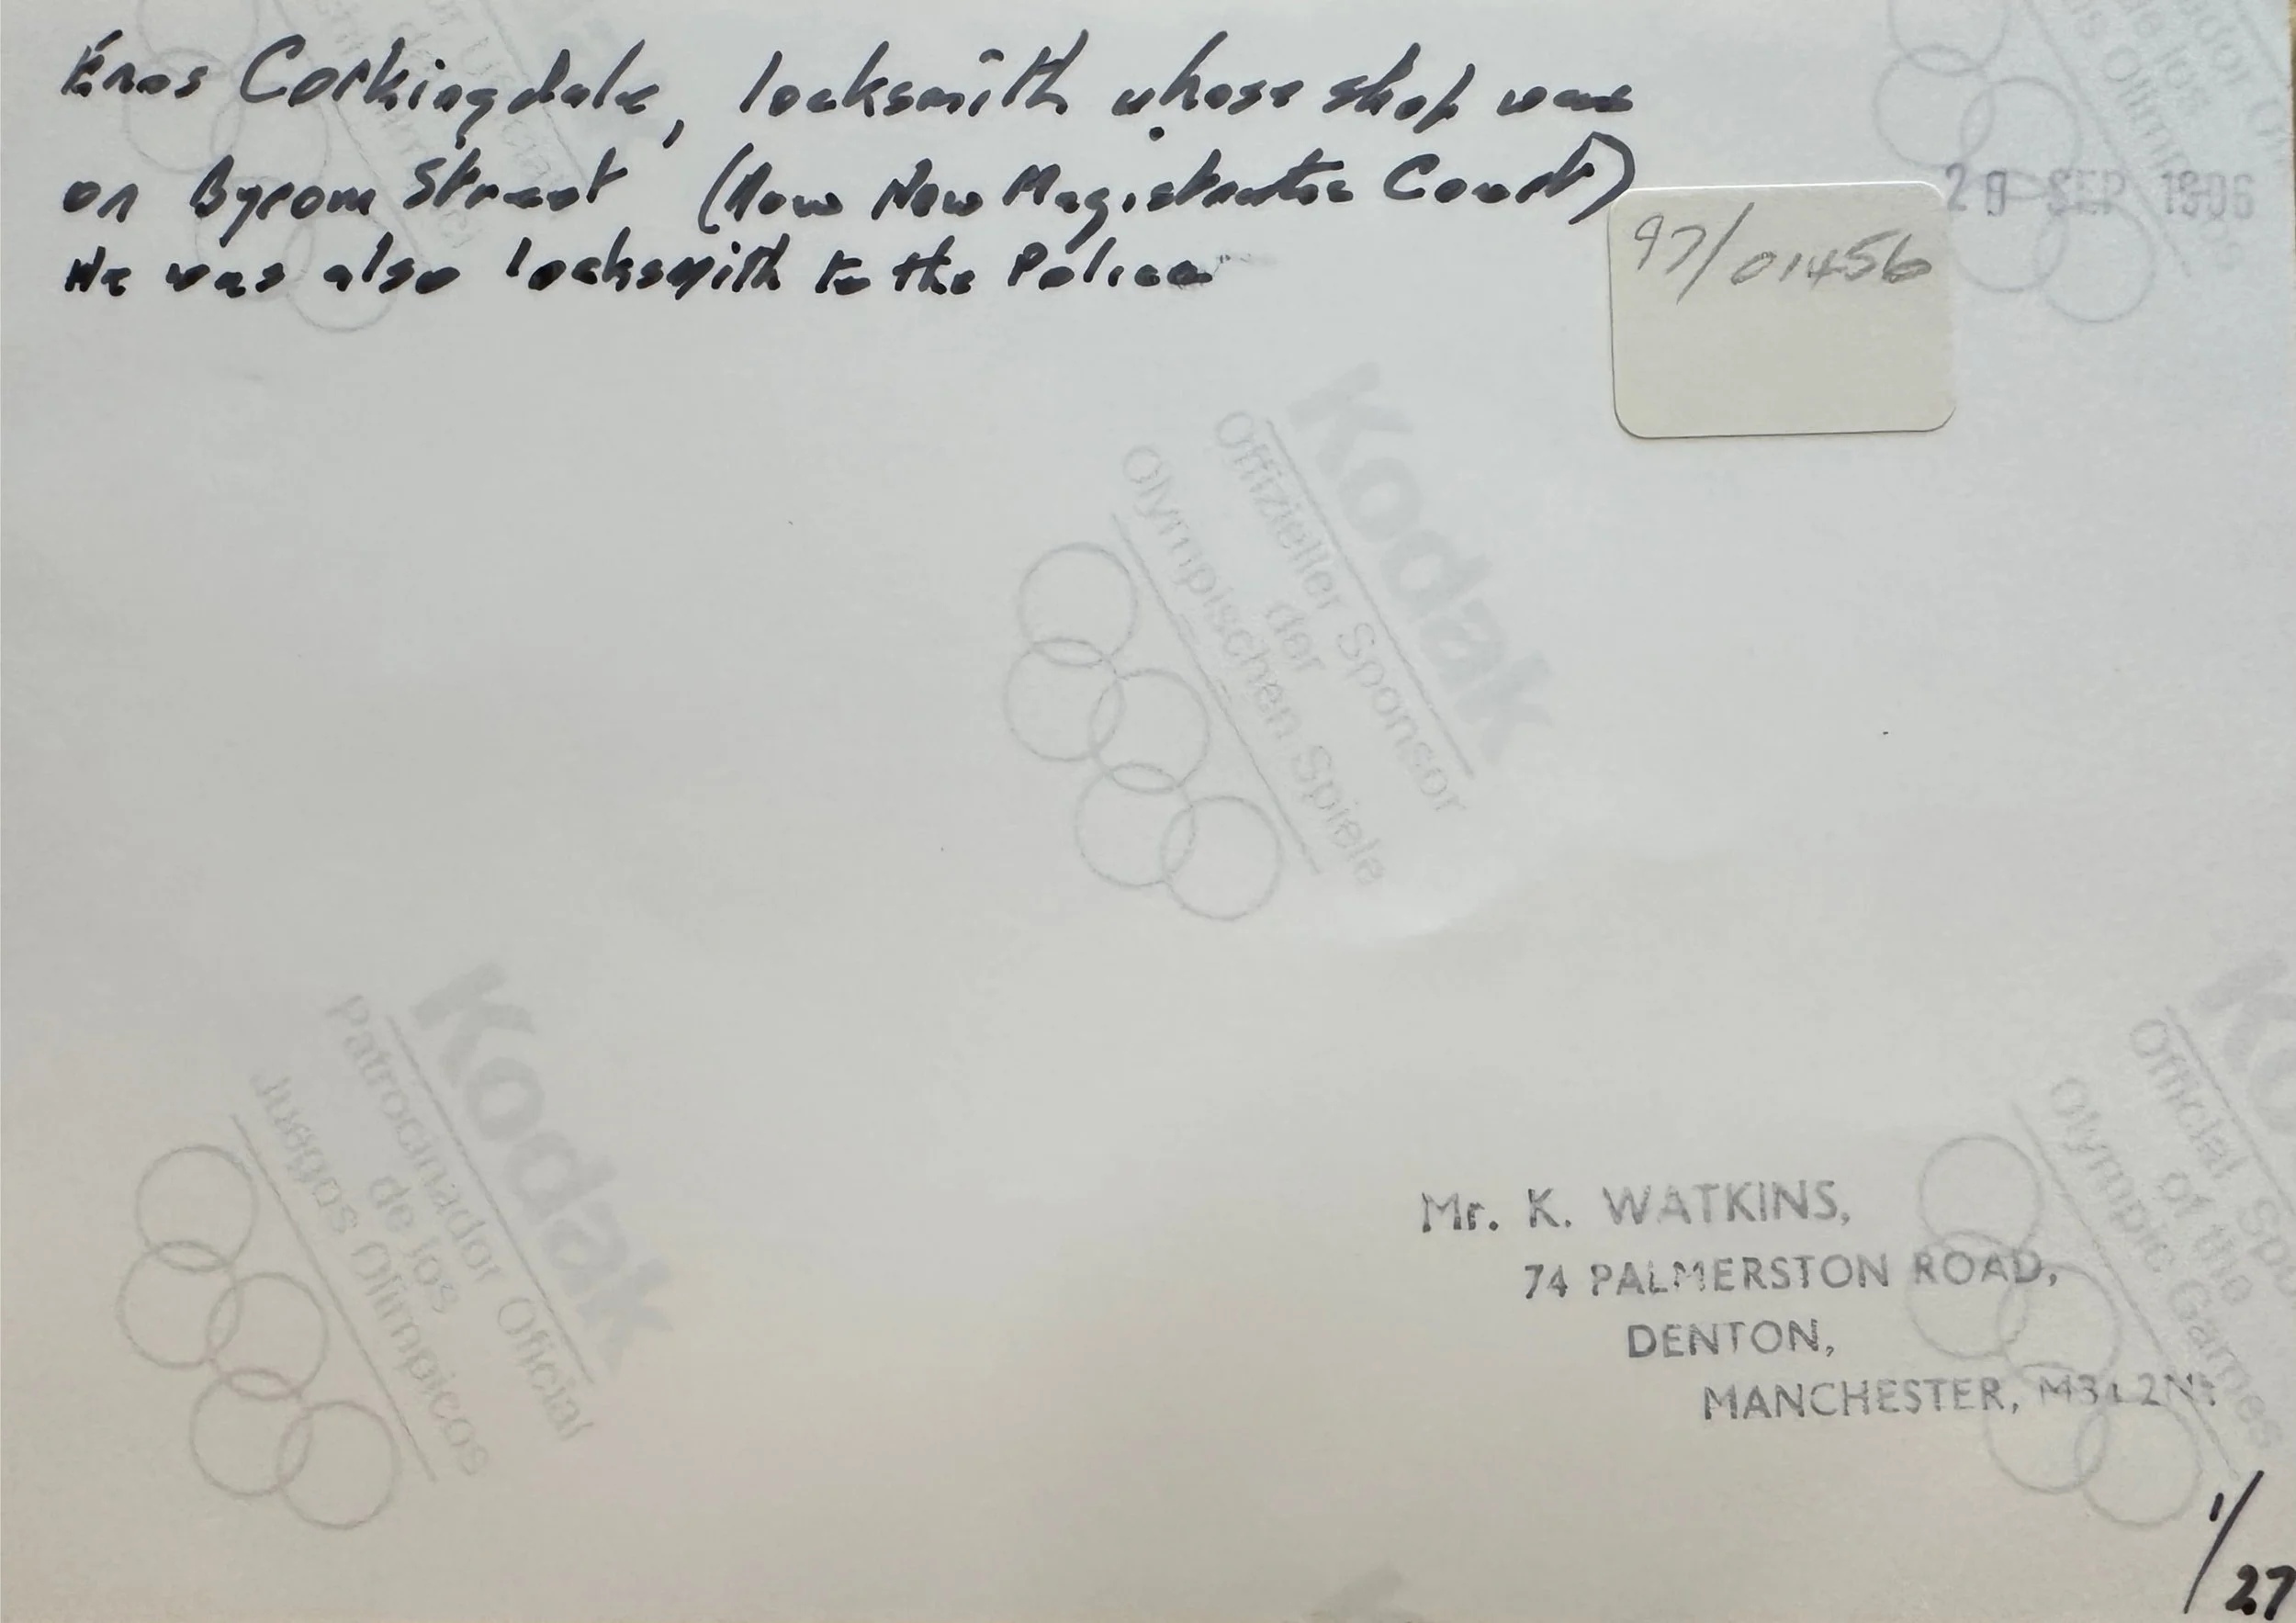 Enos Corkingdale, locksmith whose shop was
on Byrom Street (Now New Magistrates Court)
He was also locksmith to the Police
97/01456
SEP
Kodak
Offizieller Sponsor
der
Olympischen Spiele
Kodak
Patrocinador Oficial
de los
Juegos Olímpicos
Official
of the
Olympic Games
Mr. K. WATKINS,
74 PALMERSTON ROAD,
DENTON,
MANCHESTER,
1/27